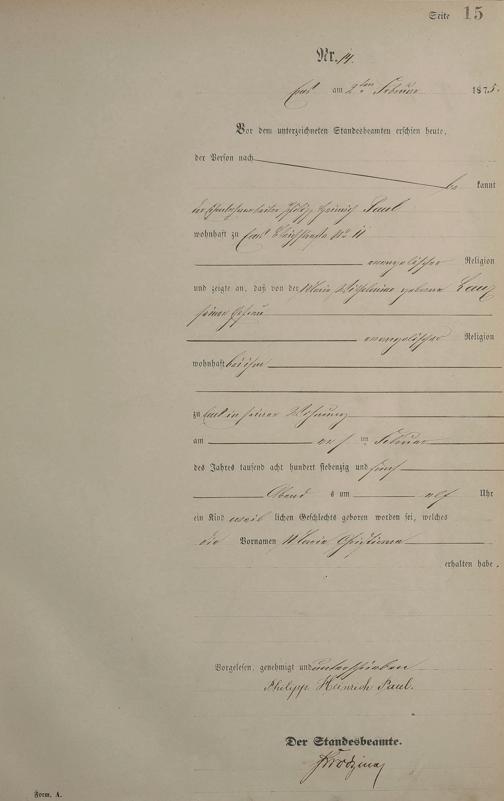 Seite 15
Nr. 14.
Ems am 2ten Februar 1875.
Vor dem unterzeichneten Standesbeamten erschien heute,
der Person nach be kannt
der Philipp Heinrich Paul
wohnhaft zu Ems No 11
evangelischer Religion
und zeigte an, daß von der Maria Wilhelmine geborene
seiner Ehefrau
evangelischer Religion
wohnhaft bei ihm
zu Ems in seiner Wohnung
am ersten Februar
des Jahres tausend acht hundert siebenzig und fünf
Abend s um elf Uhr
ein Kind weib lichen Geschlechts geboren worden sei, welches
die Vornamen Maria Christiana
erhalten habe.
Vorgelesen, genehmigt und unterschrieben
Philipp Heinrich Paul.
Der Standesbeamte.
Form. A.